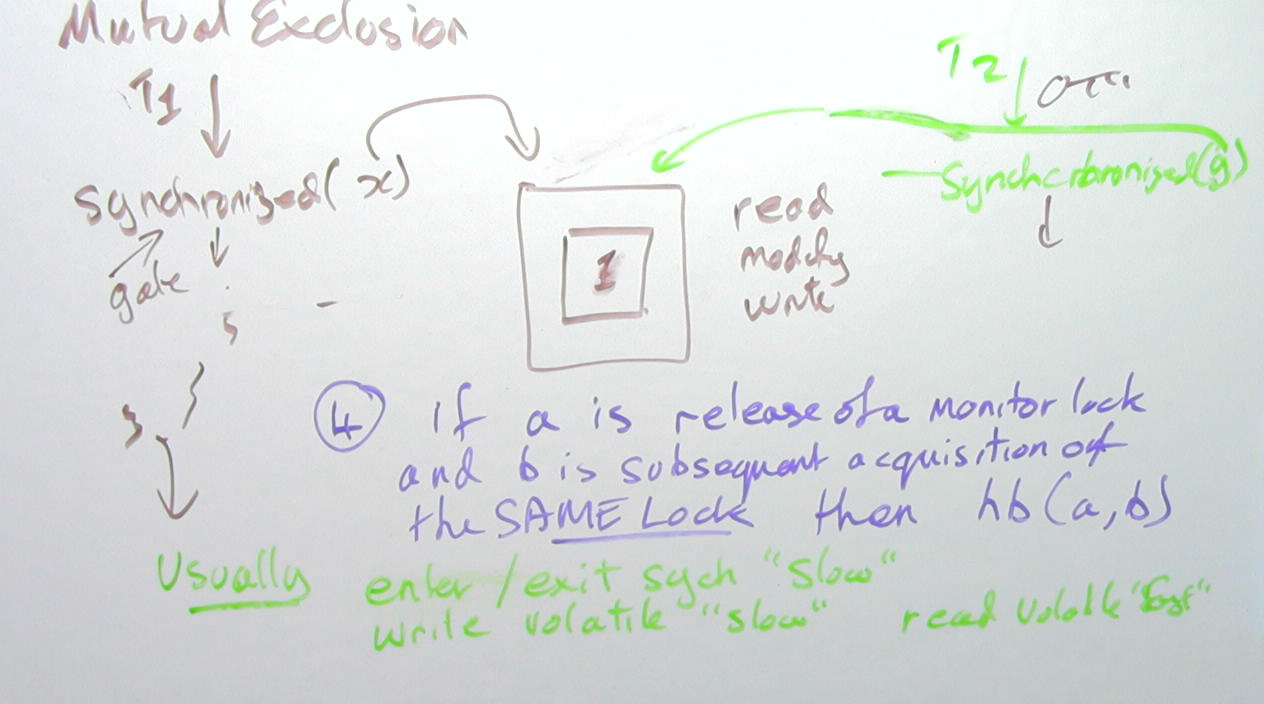 Mutual Exclusion
T1
synchronized( x)
gate
1
read
modify
write
T2
Synchchronized(y)
4 If a is release of a monitor lock
and b is subsequent acquisition of
the SAME Lock then hb(a,b)
Usually enter/exit sych "slow"
write volatile "slow" read volatile "fast"